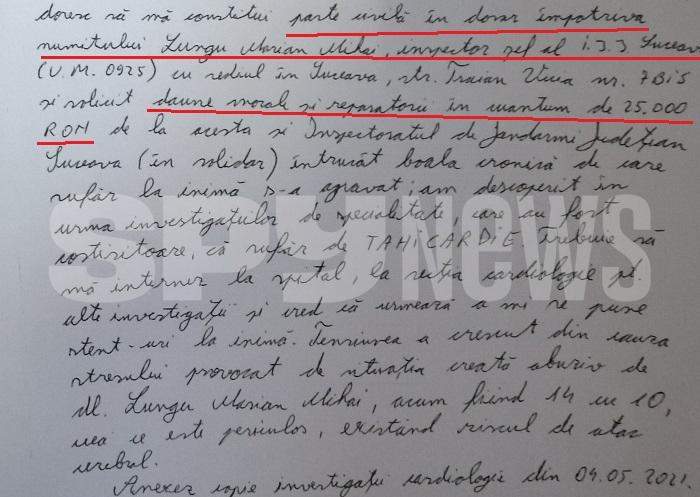 doresc să mă constitui parte civilă în dosar împotriva
numitului Lungu Marian Mihai, inspector șef al I.J.J Suceava
(U.M. 0925) cu sediul în Suceava, str. Traian Vuia nr. 7BIS
și solicit daune morale și reparatorii în cuantum de 25.000
RON de la acesta și Inspectoratul de Jandarmi Județean
Suceava (în solidar) întrucât boala cronică de care
sufăr la inimă s-a agravat; am descoperit în
urma investigațiilor de specialitate, care au fost
costisitoare, că sufăr de TAHICARDIE. Trebuie să
mă internez la spital, la secția cardiologie pt.
alte investigații și cred că urmează a mi se pune
stent-uri la inimă. Tensiunea a crescut din cauza
stresului provocat de situația creată abuziv de
dl. Lungu Marian Mihai, acum fiind 14 cu 10,
ceea ce este periculos, existând riscul de atac
cerebral.
Anexez copie investigații cardiologie din 04.05.2021.
SPYNEWS